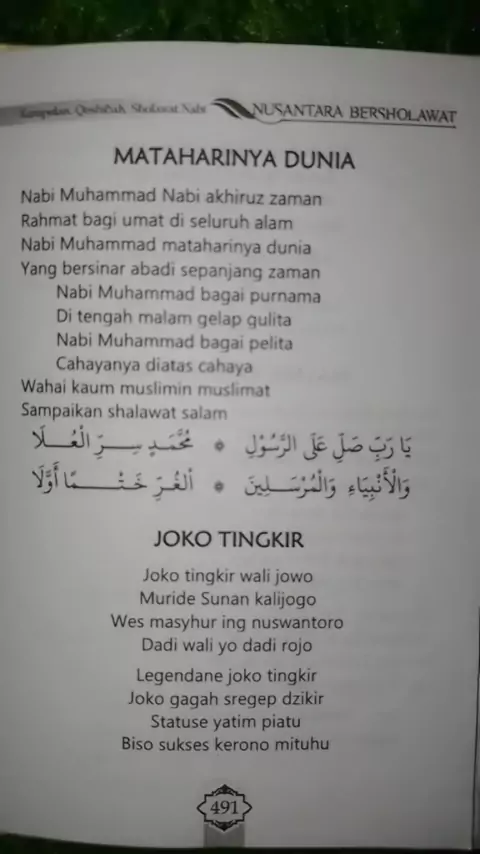 Kumpulan Qoshidah Sholawat Nabi NUSANTARA BERSHOLAWAT
MATAHARINYA DUNIA
Nabi Muhammad Nabi akhiruz zaman
Rahmat bagi umat di seluruh alam
Nabi Muhammad mataharinya dunia
Yang bersinar abadi sepanjang zaman
Nabi Muhammad bagai purnama
Di tengah malam gelap gulita
Nabi Muhammad bagai pelita
Cahayanya diatas cahaya
Wahai kaum muslimin muslimat
Sampaikan shalawat salam
يَا رَبِّ صَلِّ عَلَى الرَّسُوْلِ * مُحَمَّدٍ سِرِّ الْعُلَا
وَالْأَنْبِيَاءِ وَالْمُرْسَلِينَ * اَلْغُرِّ خَتْمًا أَوَّلَا
JOKO TINGKIR
Joko tingkir wali jowo
Muride Sunan kalijogo
Wes masyhur ing nuswantoro
Dadi wali yo dadi rojo
Legendane joko tingkir
Joko gagah sregep dzikir
Statuse yatim piatu
Biso sukses kerono mituhu
491